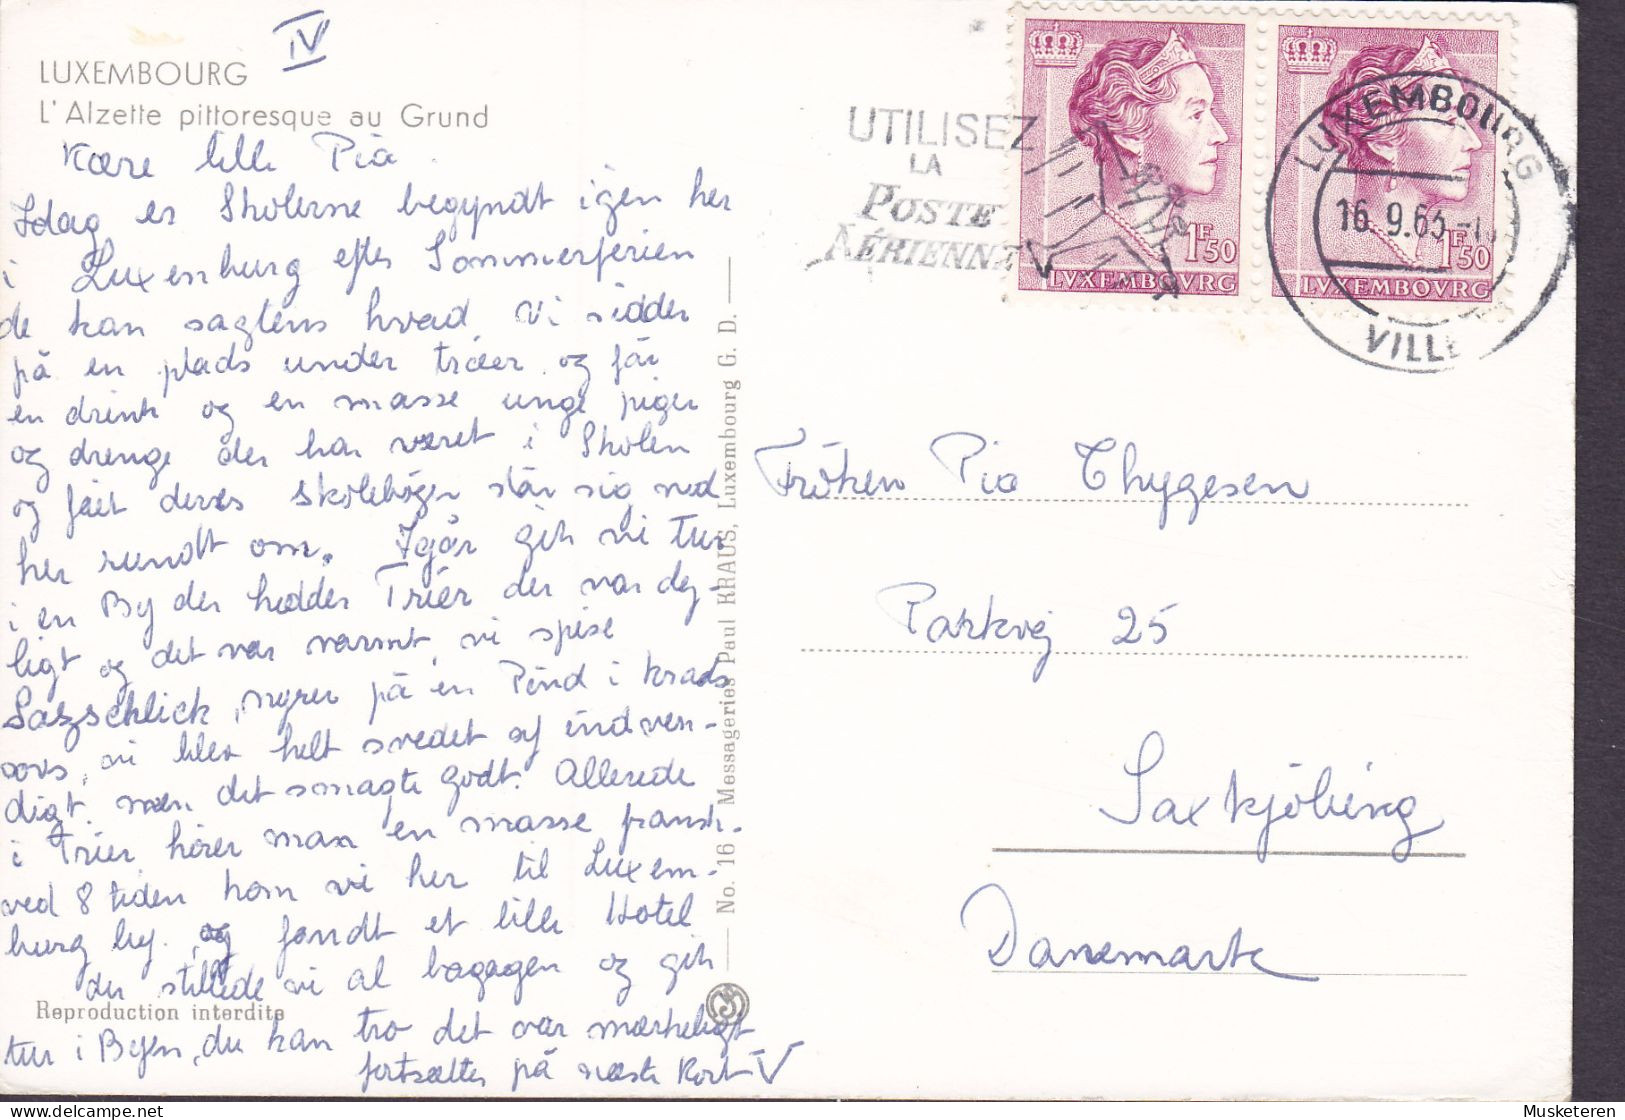 IV
LUXEMBOURG
L' Alzette pittoresque au Grund
Kære lille Pia
Idag er Skolerne begyndt igen her
i Luxenburg efter Sommerferien
de kan sagtens hvad, vi sidder
på en plads under træer og får
en drink og en masse unge piger
og drenge der har været i Skolen
og fået deres skolebøger slår sig ned
her rundt om. Igår gik vi tur
i en By der hedder Trier der var dej-
ligt og det var varmt, vi spise
på en i
vi blev helt svedet af indven-
digt, men det smagte godt. Allerede
i Trier hører man en masse fransk.
ved 8 tiden kom vi her til Luxem-
burg by og fandt et lille Hotel
der stillede vi al bagagen og gik
tur i Byen, du kan tro det var mærkeligt
fortsættes på næste Kort V
Reproduction interdite
No. 16 Messageries Paul KRAUS, Luxembourg G. D.
UTILISEZ
LA
POSTE
AÉRIENNE
1F50
LVXEMBOVRG
1F50
LVXEMBOVRG
LUXEMBOURG
VILLE
Fröken Pia Thygesen
Parkvej 25
Saxkjöbing
Danemark
© Musketeren
delcampe.net